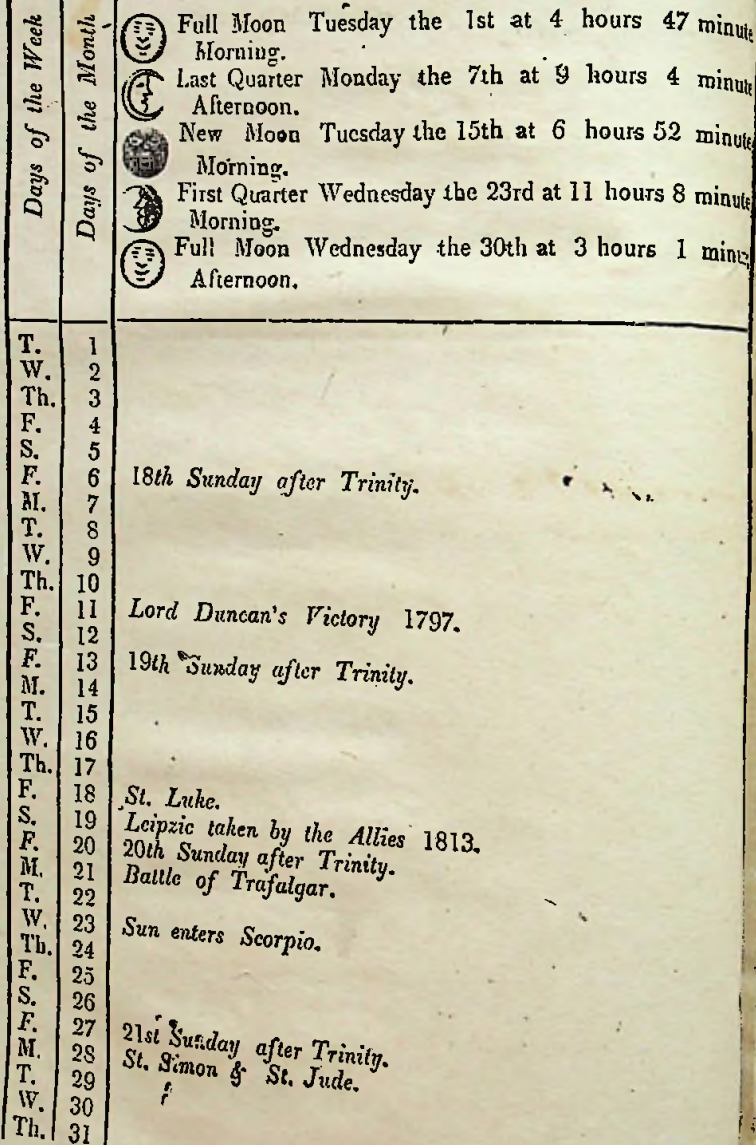 Days of the Week
Days of the Month
Full Moon Tuesday the 1st at 4 hours 47 minute
Morning.
Last Quarter Monday the 7th at 9 hours 4 minute
Afternoon.
New Moon Tuesday the 15th at 6 hours 52 minute
Morning.
First Quarter Wednesday the 23rd at 11 hours 8 minute
Morning.
Full Moon Wednesday the 30th at 3 hours 1 minu
Afternoon.
T. 1
W. 2
Th. 3
F. 4
S. 5
F. 6 18th Sunday after Trinity.
M. 7
T. 8
W. 9
Th. 10
F. 11 Lord Duncan's Victory 1797.
S. 12
F. 13 19th Sunday after Trinity.
M. 14
T. 15
W. 16
Th. 17
F. 18 St. Luke.
S. 19 Leipzic taken by the Allies 1813.
F. 20 20th Sunday after Trinity.
M. 21 Battle of Trafalgar.
T. 22
W. 23 Sun enters Scorpio.
Th. 24
F. 25
S. 26
F. 27 21st Sunday after Trinity.
M. 28 St. Simon & St. Jude.
T. 29
W. 30
Th. 31